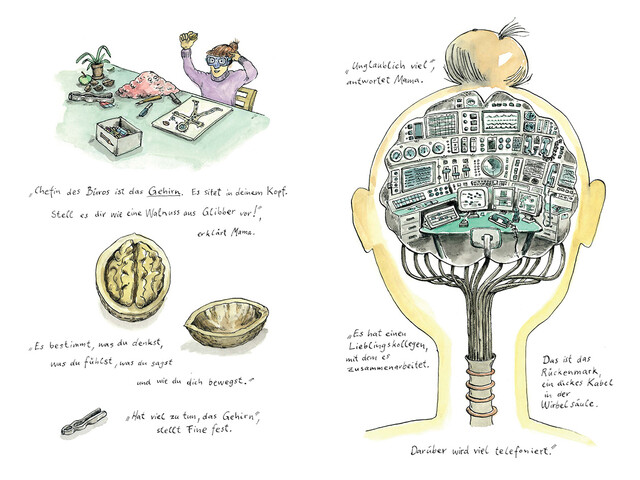 „Chefin des Büros ist das Gehirn. Es sitzt in deinem Kopf.
Stell es dir wie eine Walnuss aus Glibber vor!",
erklärt Mama.
„Es bestimmt, was du denkst,
was du fühlst, was du sagst
und wie du dich bewegst."
„Hat viel zu tun, das Gehirn",
stellt Fine fest.
„Unglaublich viel",
antwortet Mama.
„Es hat einen
Lieblingskollegen,
mit dem es
zusammenarbeitet.
Das ist das
Rückenmark,
ein dickes Kabel
in der
Wirbelsäule.
Darüber wird viel telefoniert."